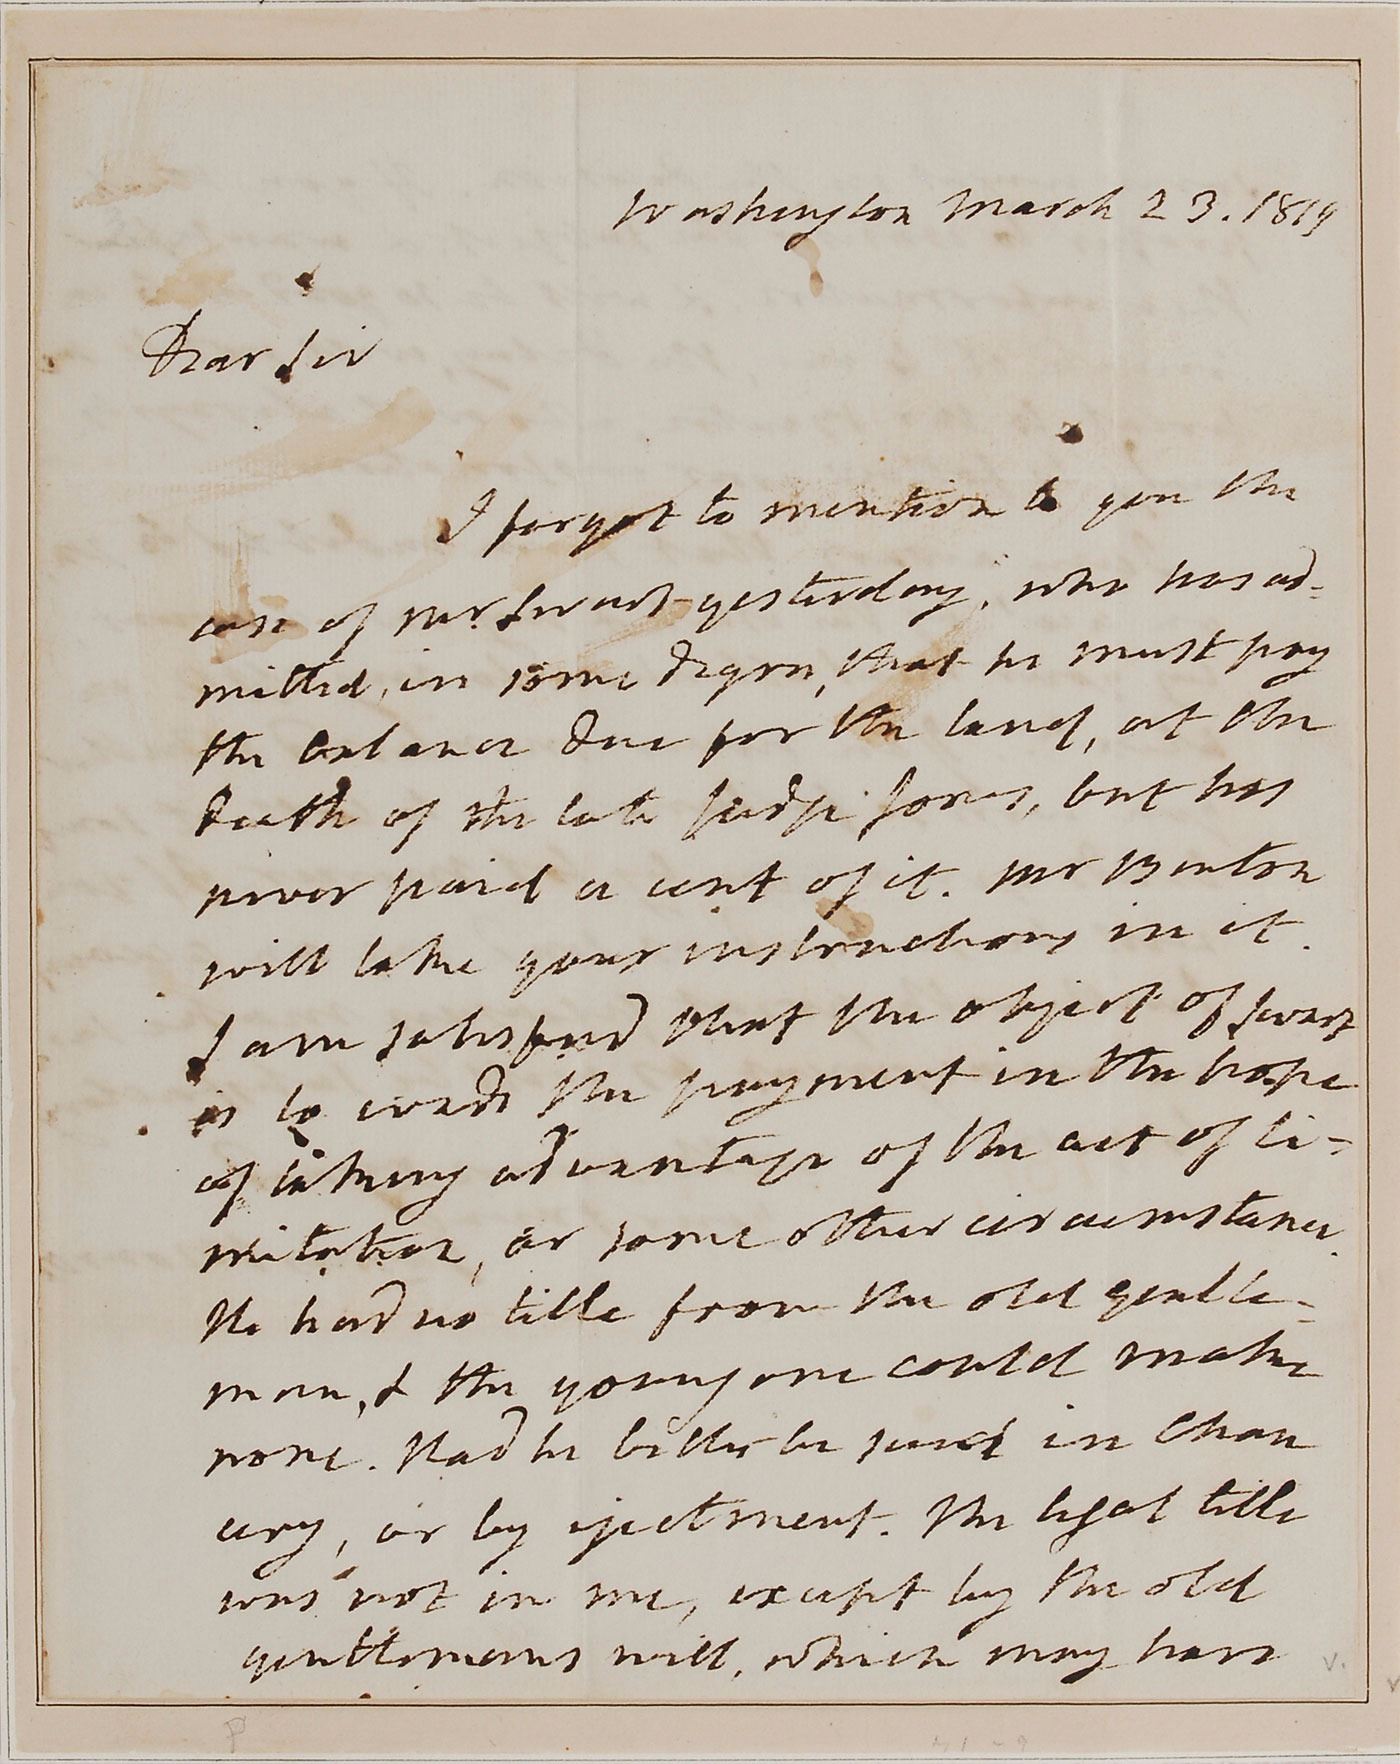 Washington March 23. 1819
Dear Sir
I forgot to mention to you the
case of Mr. Swart yesterday, who has ad=
mitted, in some degree, that he must pay
the balance due for the land, at the
death of the late judge Jones, but has
never paid a cent of it. Mr Benton
will take your instructions in it.
I am satisfied that the object of Swart
is to evade the payment in the hope
of taking advantage of the act of li=
mitation, or some other circumstance.
He had no title from the old gentle=
man, & the young one could make
none. Had he better be sued in Chan
cery, or by ejectment. The legal title
was not in me, except by the old
gentlemans will, which may have